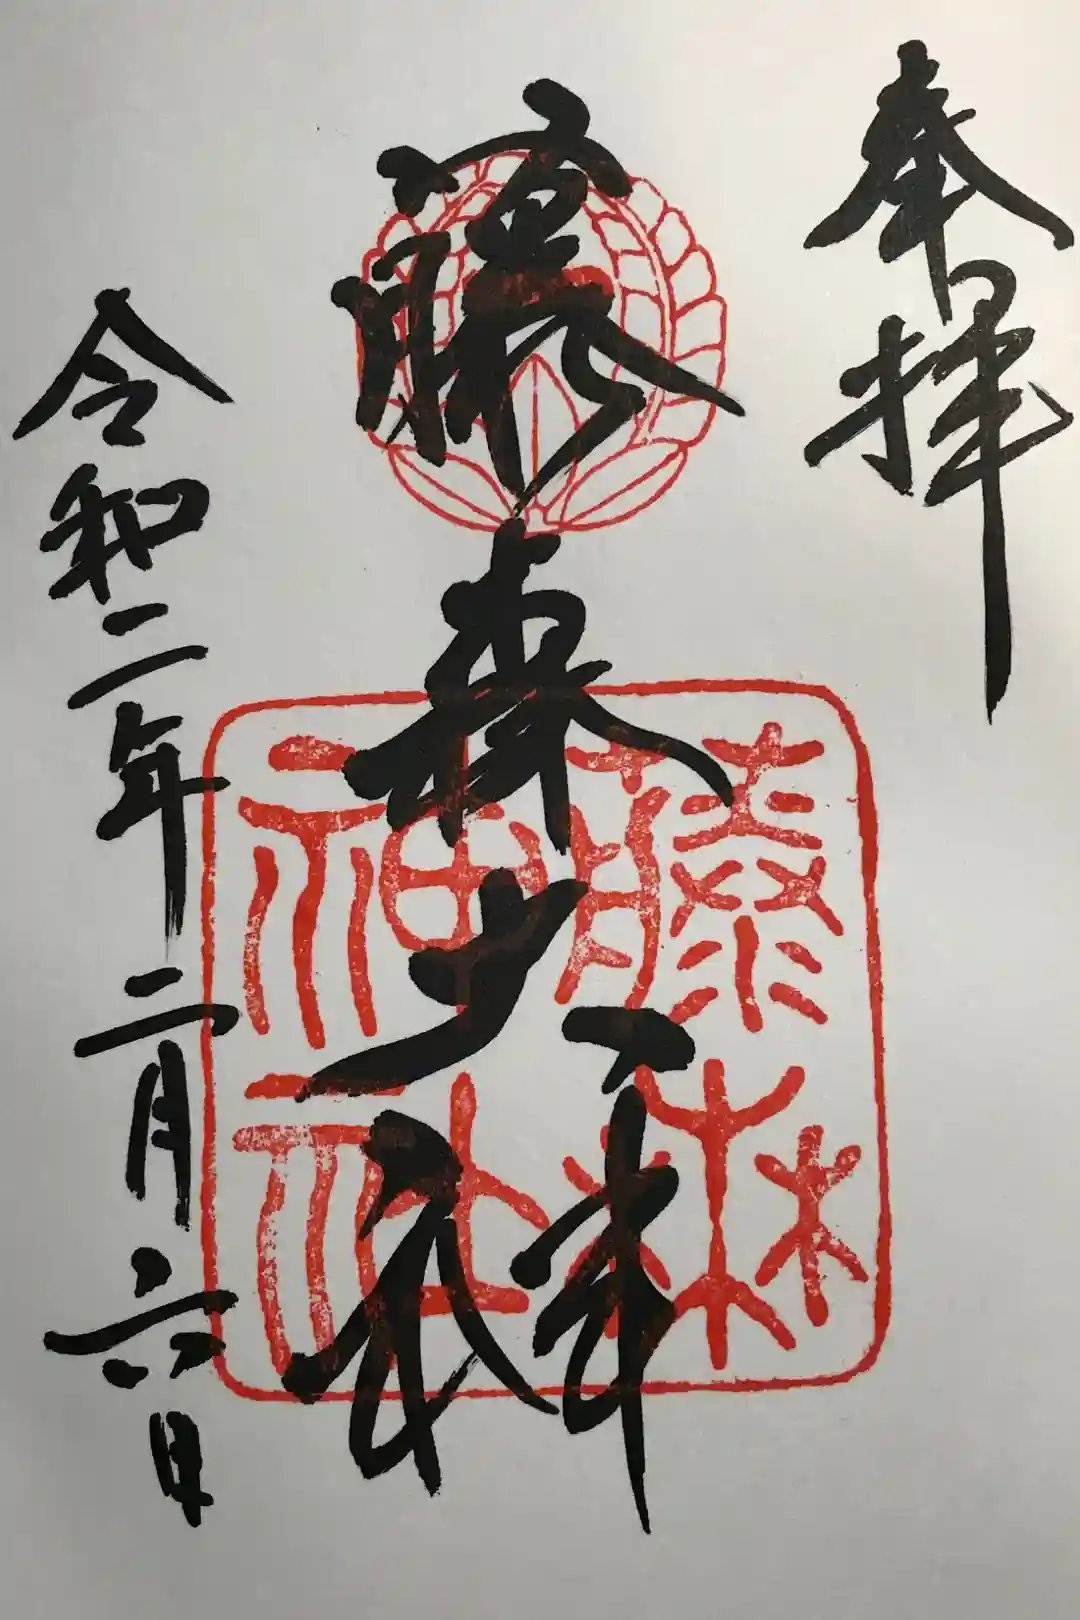 奉拝
藤森神社
藤森神社
令和二年二月六日